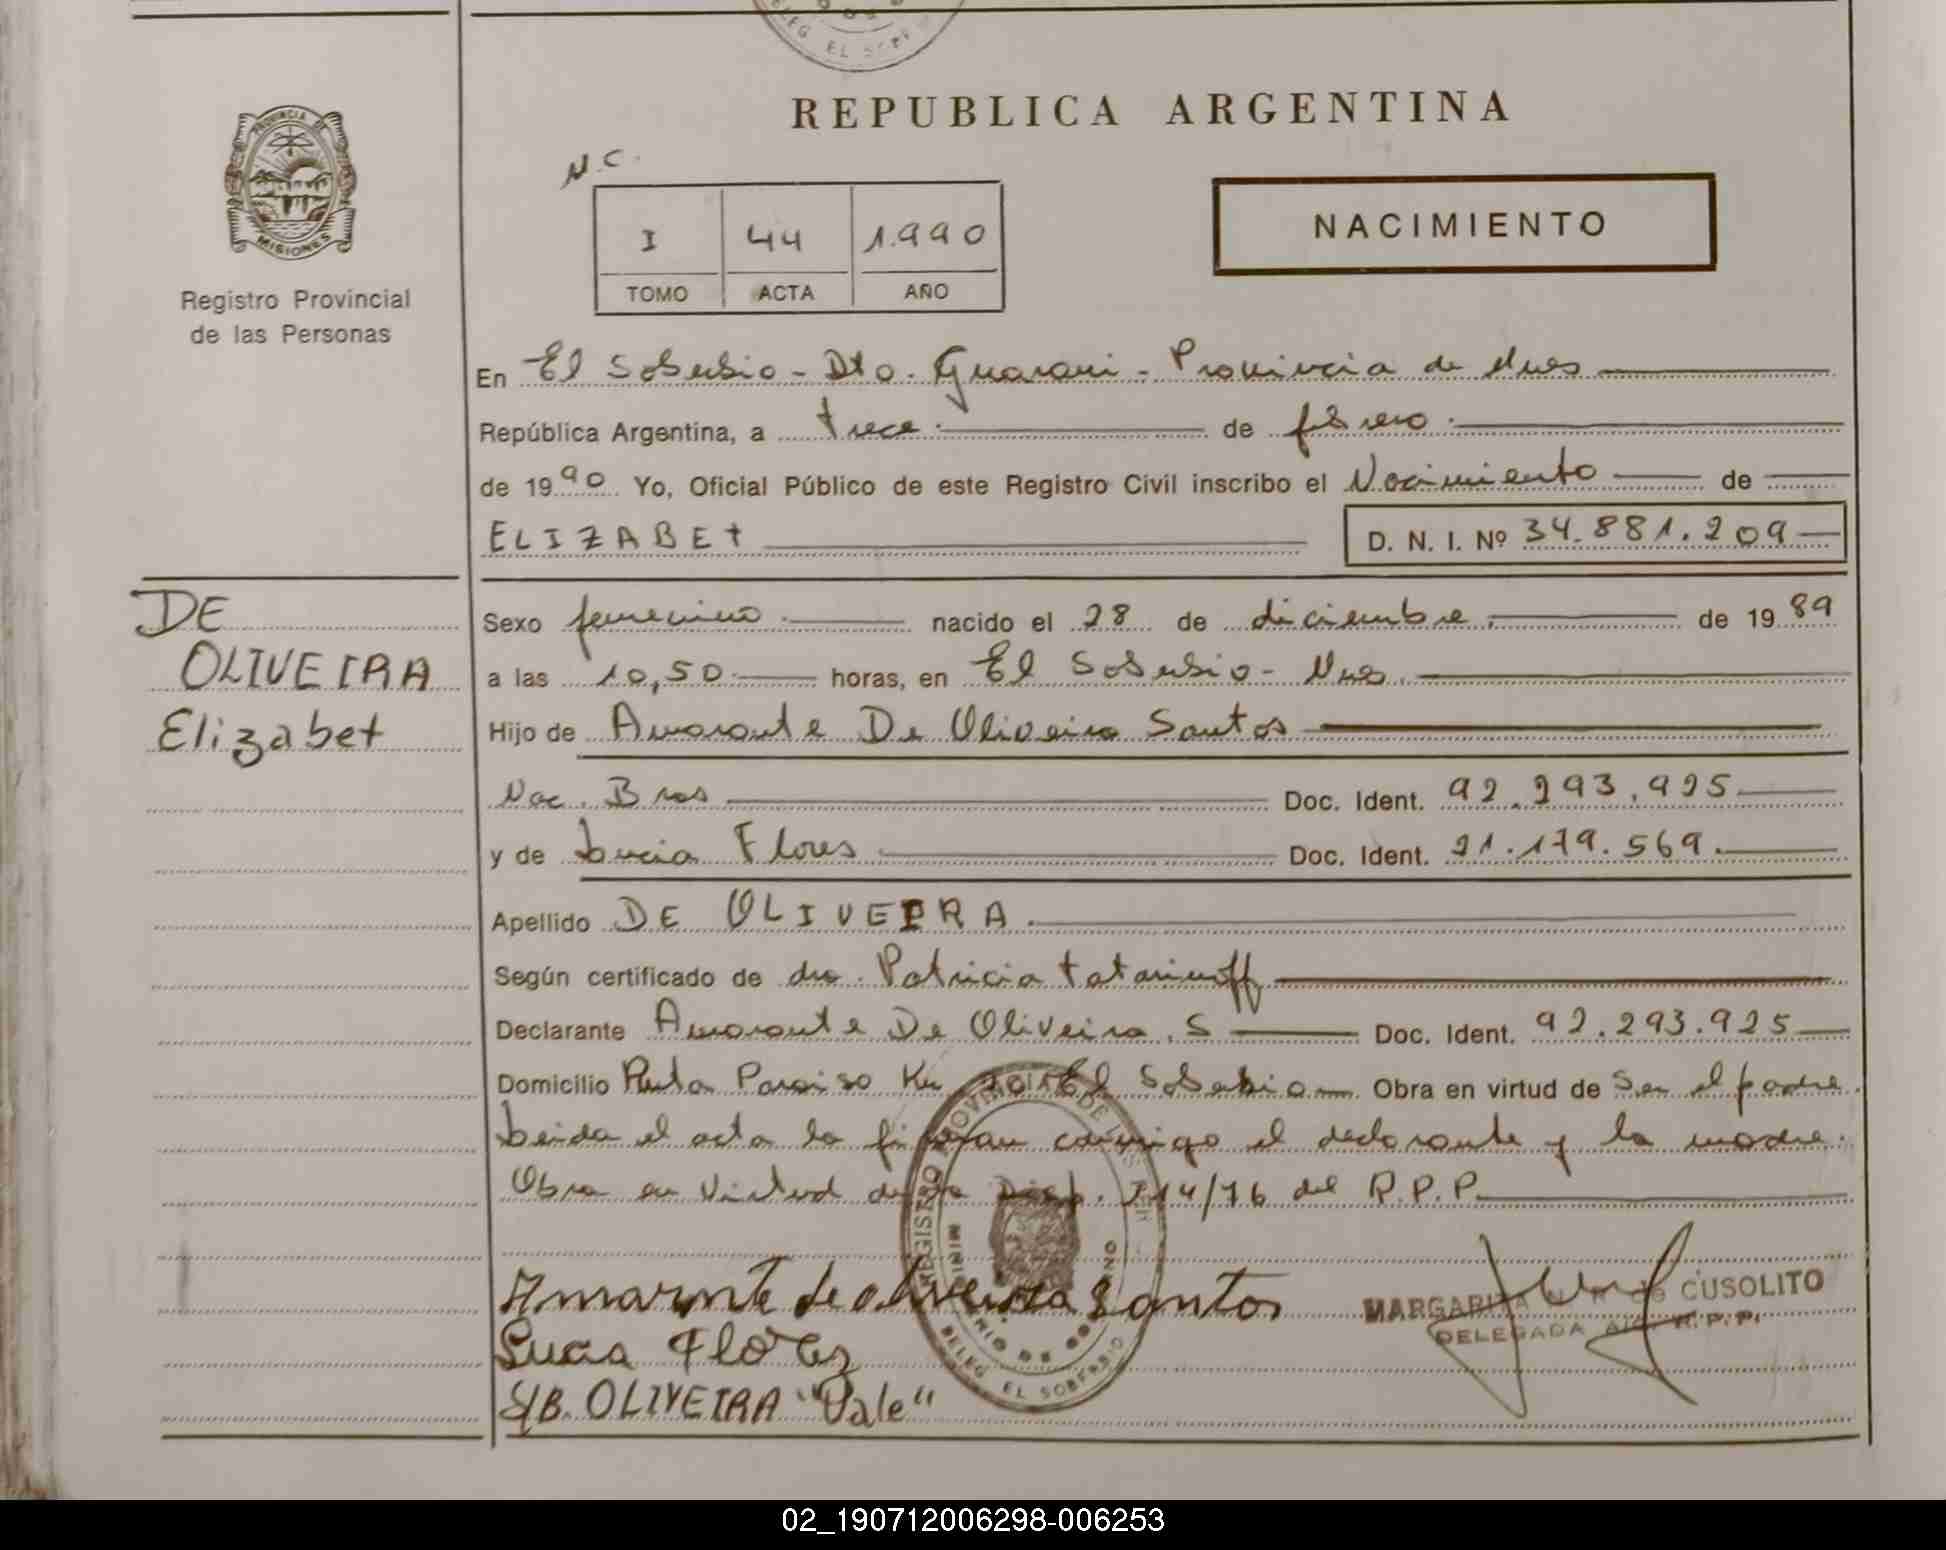 DELEG EL SOBE
REPUBLICA ARGENTINA
PROVINCIA DE
MISIONES
Registro Provincial
de las Personas
N.C.
I 44 1.990
TOMO ACTA AÑO
NACIMIENTO
En El Soberbio - Dto. Guarani - Provincia de Mnes
República Argentina, a trece de febrero
de 1990 Yo, Oficial Público de este Registro Civil inscribo el Nacimiento de
ELIZABET D. N. I. Nº 34.881.209
DE
OLIVEIRA
Elizabet
Sexo femenino nacido el 28 de diciembre de 1989
a las 10,50 horas, en El Soberbio - Mnes.
Hijo de Amarante De Oliveira Santos
Nac. Bras Doc. Ident. 92.293.925
y de Lucia Flores Doc. Ident. 21.179.569.
Apellido DE OLIVEIRA.
Según certificado de dra. Patricia Tatarinoff
Declarante Amarante De Oliveira. S Doc. Ident. 92.293.925
Domicilio Ruta Paraiso Km El Soberbio Obra en virtud de Ser el padre.
Leida el acta la firman conmigo el declarante y la madre.
Obra en virtud de la Disp. 214/76 del R.P.P.
Amarante de oliveira Santos
Lucia Florez
S/B. OLIVEIRA "Vale"
REGISTRO PROVINCIAL DE LAS PER
MINISTERIO DE GOBIERNO
DELEG EL SOBERBIO
MARGARITA CUSOLITO
DELEGADA R.P.P.
02_190712006298-006253